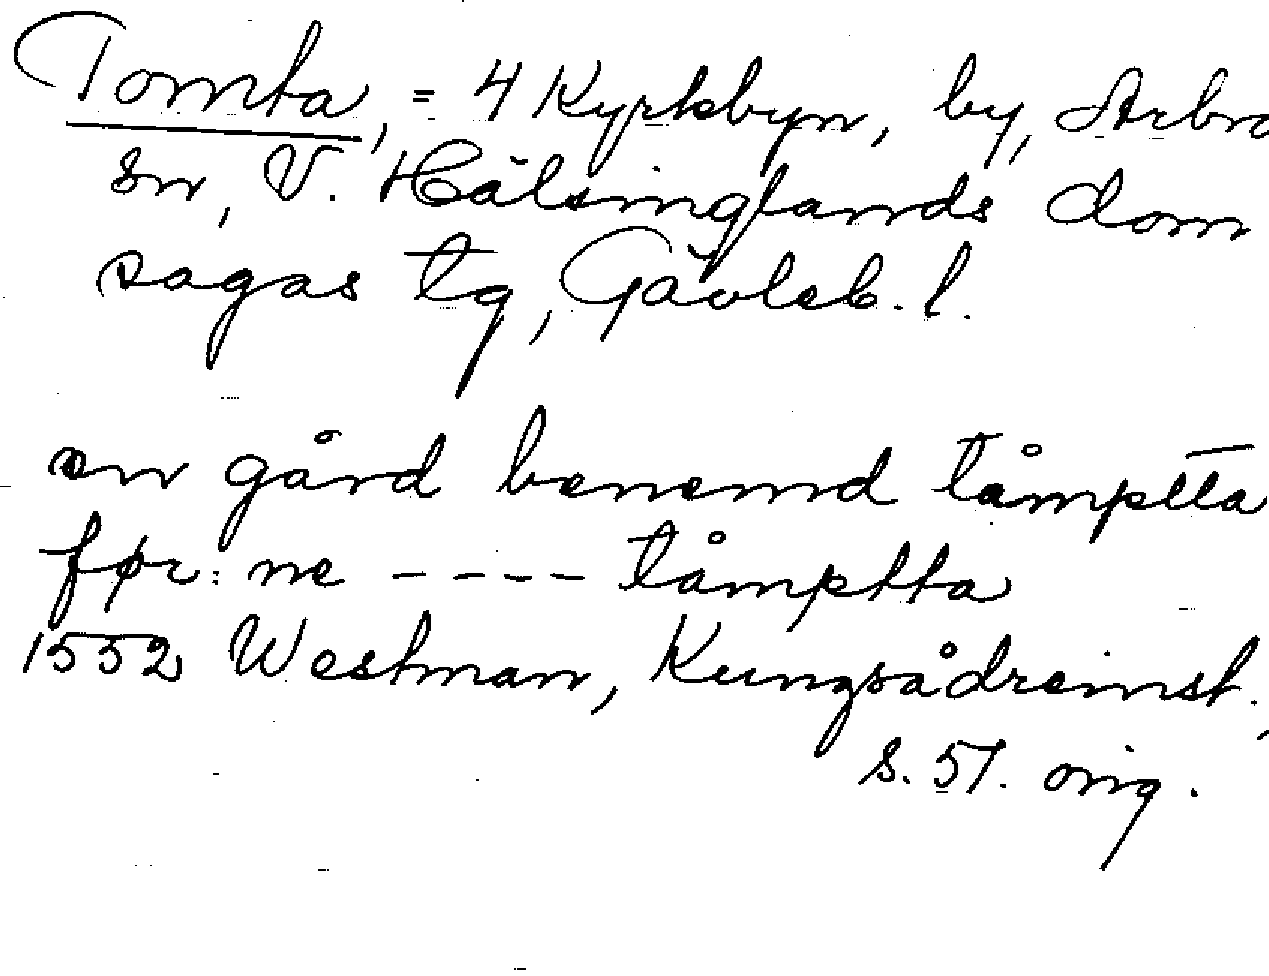 Tomta, = 4 Kyrkbyn, by, Arbrå
sn, V. Hälsinglands dom
sagas tg, Gävleb. l.
en gård benemd tåmptta
før: ne - - - - tåmptta
1552 Westman, Kungsådreinst.,
s. 57. orig.